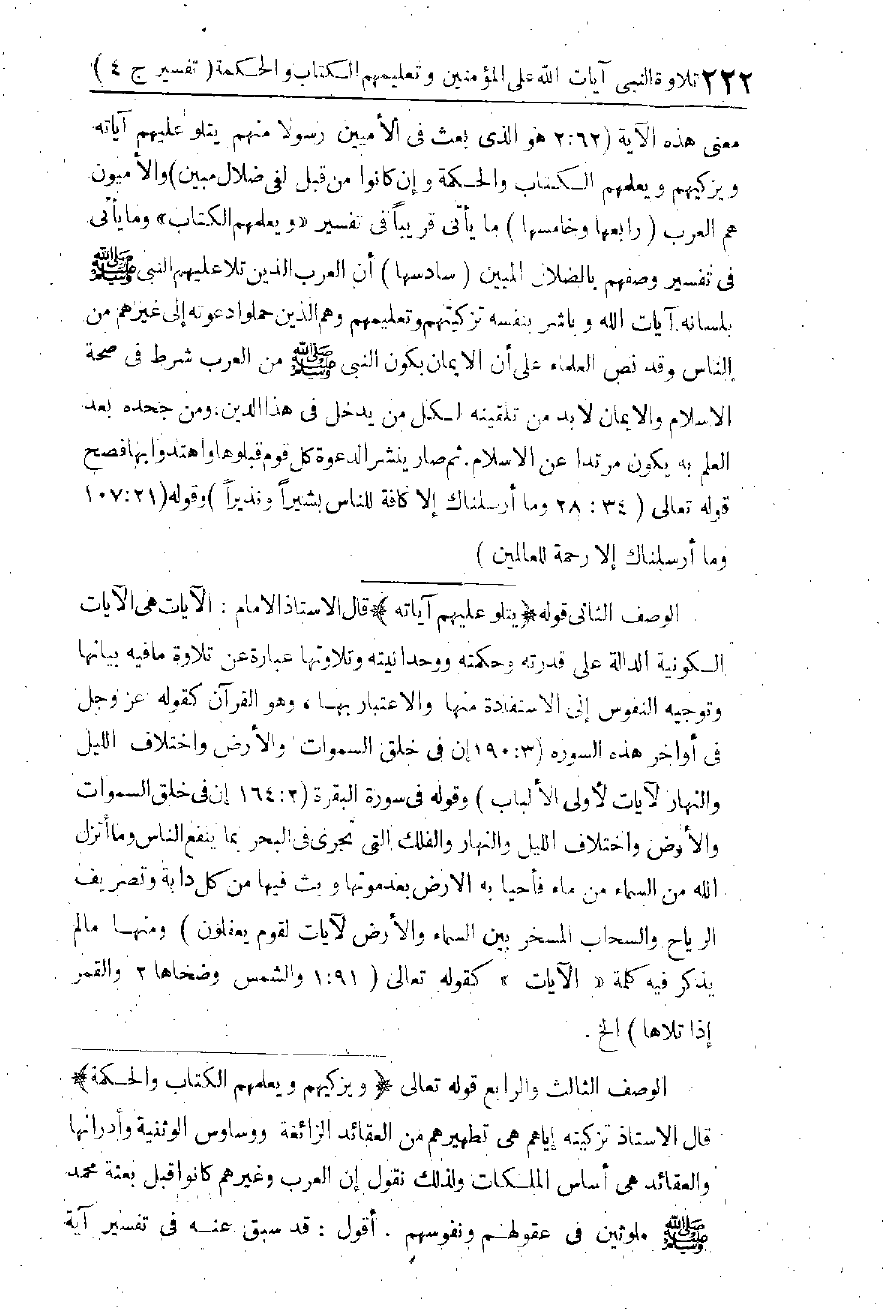 ٢٢٢ تلاوة النبي آيات الله على المؤمنين وتعليمهم الكتاب والحكمة ( تفسير ج ٤ )
معنى هذه الآية (٢:٦٢ هو الذى بعث فى الأميين رسولا منهم يتلو عليهم آياته
ويزكيهم ويعلمهم الكتاب والحكمة وإن كانوا من قبل لفى ضلال مبين) والأميون
هم العرب ( رابعها وخامسها ) ما يأتى قريباً فى تفسير «ويعلمهم الكتاب» وما يأتى
فى تفسير وصفهم بالضلال المبين ( سادسها ) أن العرب الذين تلا عليهم النبى ﷺ
بلسانه آيات الله وباشر بنفسه تزكيتهم وتعليمهم وهم الذين حملوا دعوته إلى غيرهم من
الناس وقد نص العلماء على أن الايمان بكون النبى ﷺ من العرب شرط فى صحة
الاسلام والايمان لابد من تلقينه لكل من يدخل فى هذا الدين، ومن جحده بعد
العلم به يكون مرتدا عن الاسلام. ثم صار ينشر الدعوة كل قوم قبلوها واهتدوا بها فصح
قوله تعالى ( ٣٤ : ٢٨ وما أرسلناك إلا كافة للناس بشيراً ونذيراً ) وقوله (٢١:١٠٧
وما أرسلناك إلا رحمة للعالمين )
الوصف الثانى قوله ﴿يتلو عليهم آياته﴾ قال الاستاذ الامام : الآيات هى الآيات
الكونية الدالة على قدرته وحكمته ووحدانيته وتلاوتها عبارة عن تلاوة ما فيه بيانها
وتوجيه النفوس إلى الاستفادة منها والاعتبار بها ، وهو القرآن كقوله عز وجل
فى أواخر هذه السورة (٣:١٩٠ إن فى خلق السموات والأرض واختلاف الليل
والنهار لآيات لأولى الألباب ) وقوله فى سورة البقرة (٢:١٦٤ إن فى خلق السموات
والأرض واختلاف الليل والنهار والفلك التى تجرى فى البحر بما ينفع الناس وما أنزل
الله من السماء من ماء فأحيا به الارض بعد موتها وبث فيها من كل دابة وتصريف
الرياح والسحاب المسخر بين السماء والأرض لآيات لقوم يعقلون ) ومنها مالم
يذكر فيه كلمة « الآيات » كقوله تعالى ( ٩١:١ والشمس وضحاها ٢ والقمر
إذا تلاها ) الخ .
الوصف الثالث والرابع قوله تعالى ﴿ ويزكيهم ويعلمهم الكتاب والحكمة﴾
قال الاستاذ تزكيته إياهم هى تطهيرهم من العقائد الزائغة ووساوس الوثنية وأدرانها
والعقائد هى أساس الملكات ولذلك نقول إن العرب وغيرهم كانوا قبل بعثة محمد
ﷺ ملوثين فى عقولهم ونفوسهم . أقول : قد سبق عنه فى تفسير آية